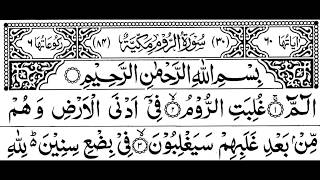 اٰیَاتُهَا ٦٠ (٣٠) سُوْرَةُ الرُّوْمِ مَكِّیَّةٌ (٨٤) رُكُوْعَاتُهَا ٦
بِسْمِ اللّٰهِ الرَّحْمٰنِ الرَّحِیْمِ
الٓمّٓ ۚ۝١ غُلِبَتِ الرُّوْمُ ۙ۝٢ فِیْۤ اَدْنَی الْاَرْضِ وَ هُمْ
مِّنْۢ بَعْدِ غَلَبِهِمْ سَیَغْلِبُوْنَ ۙ۝٣ فِیْ بِضْعِ سِنِیْنَ ؕ۬ لِلّٰهِ